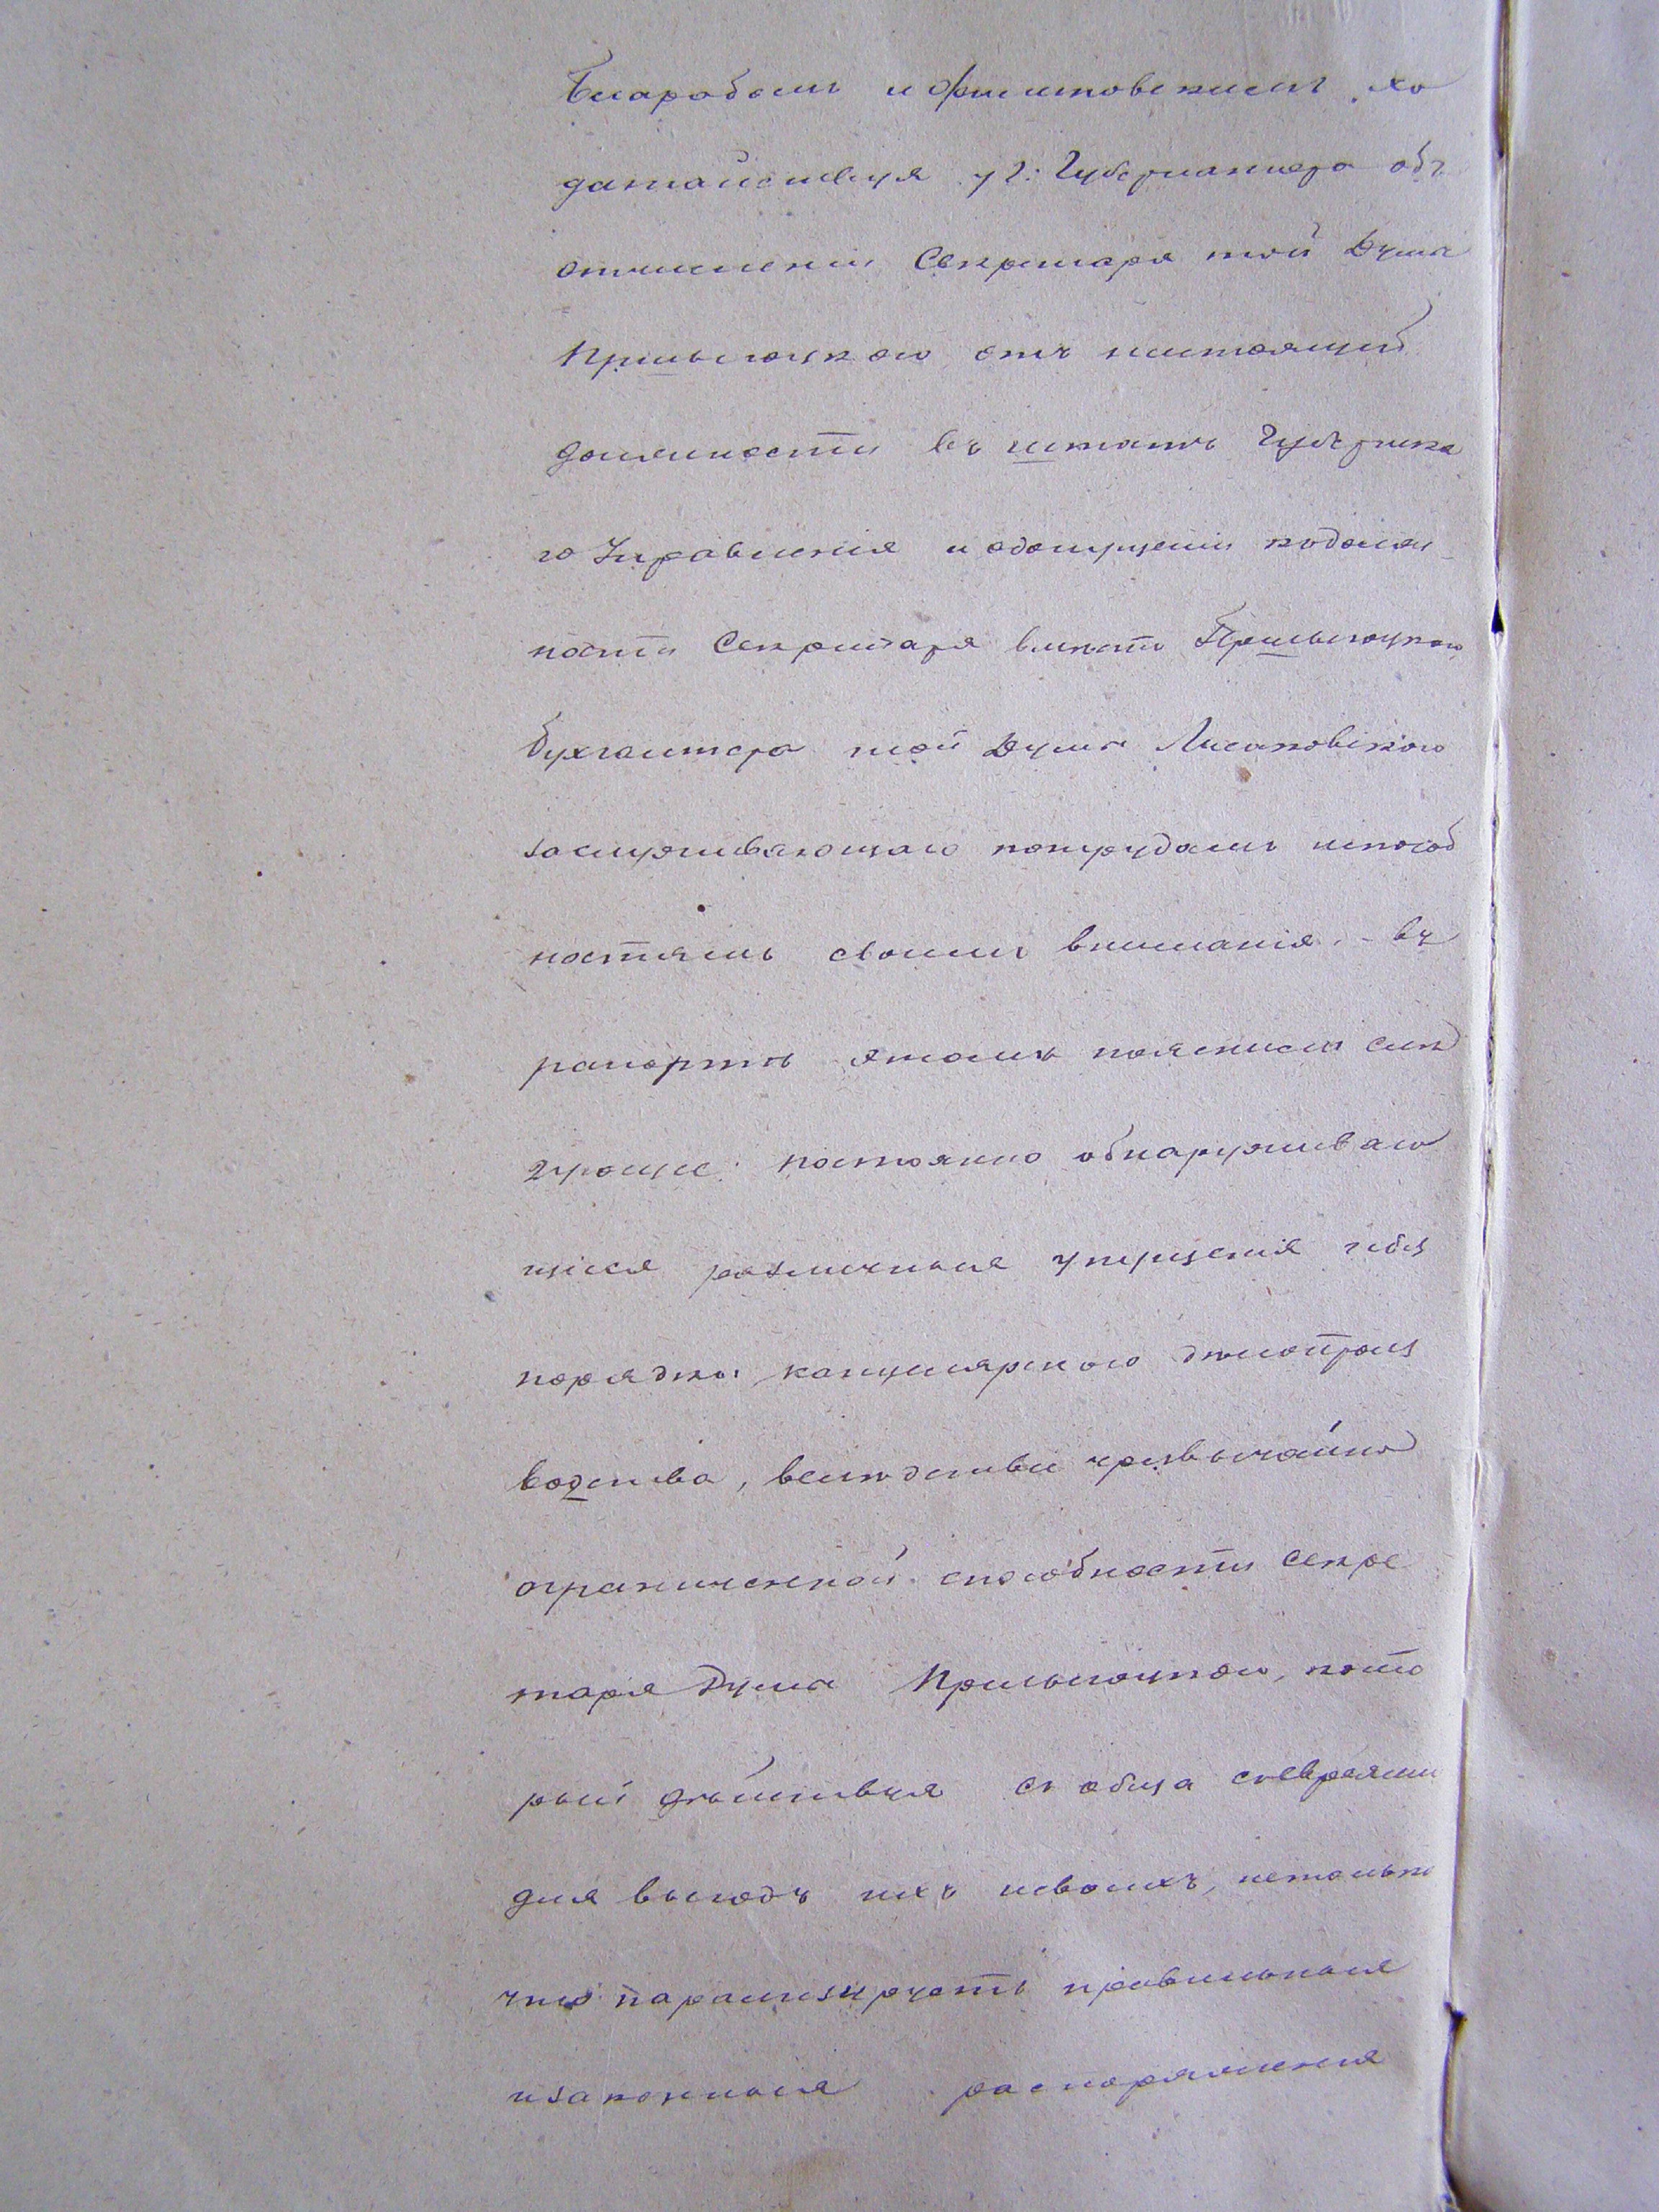 и ходо
датайствуя у Г: Губернатора объ
отчисленіи Секретаря той Думы
отъ настоящей
должности въ штатъ Губернска
го Управленія и одопущеніи кдолж
ности Секретаря вмѣсто
бухгалтера той Думы Лисаковскаго
заслуживающаго потрудамъ испособ
ностямъ своимъ вниманія. - въ
рапортѣ этомъ пояснили слѣ
дующее: постоянно обнаруживаю
щіяся различныя упущенія и без
порядки канцелярскаго дѣлопроиз
водства, вслѣдствіе чрезвычайно
ограниченной способности Секре
таря Думы кото
рый дѣйствуя съ обща съевреями
для выгодъ ихъ исвоихъ, нетолько
что парализируетъ правильныя
изаконныя распоряженія